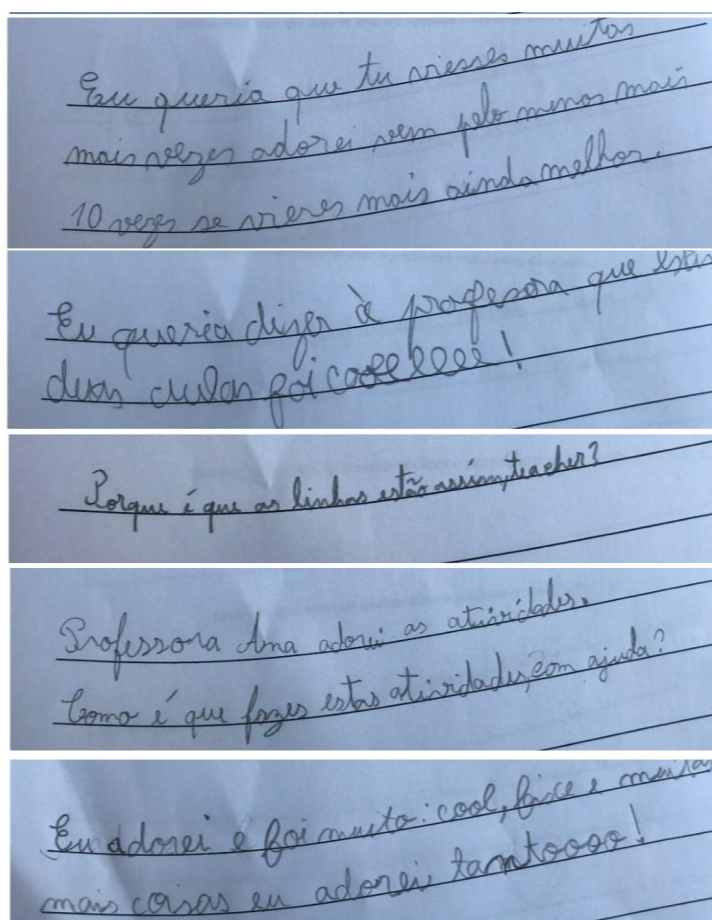 Eu queria que tu viesses muitas
mais vezes adorei vem pelo menos mais
10 vezes se vieres mais ainda melhor.
Eu queria dizer à profesora que estas
duas aulas foi cooellllll!
Porque é que as linhas estão assim, teacher?
Professora Ana adorei as atividades.
Como é que fazes estas atividades, com ajuda?
Eu adorei e foi muito: cool, fixe e muitas
mais coisas eu adorei tantoooo!